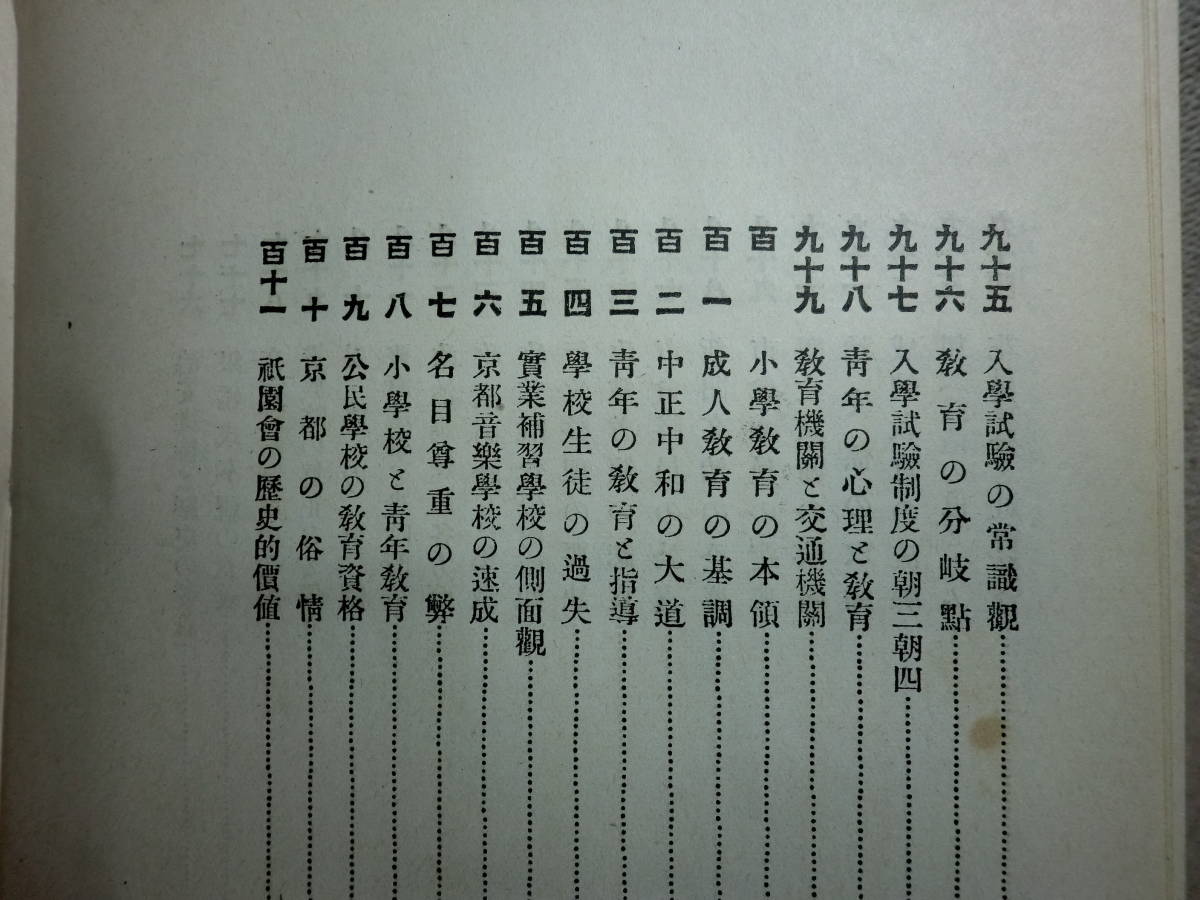 九十五 入學試驗の常識觀
九十六 敎育の分岐點
九十七 入學試驗制度の朝三朝四
九十八 靑年の心理と敎育
九十九 敎育機關と交通機關
百 小學敎育の本領
百一 成人敎育の基調
百二 中正中和の大道
百三 靑年の敎育と指導
百四 學校生徒の過失
百五 實業補習學校の側面觀
百六 京都音樂學校の速成
百七 名目尊重の弊
百八 小學校と靑年敎育
百九 公民學校の敎育資格
百十 京都の俗情
百十一 祇園會の歷史的價値